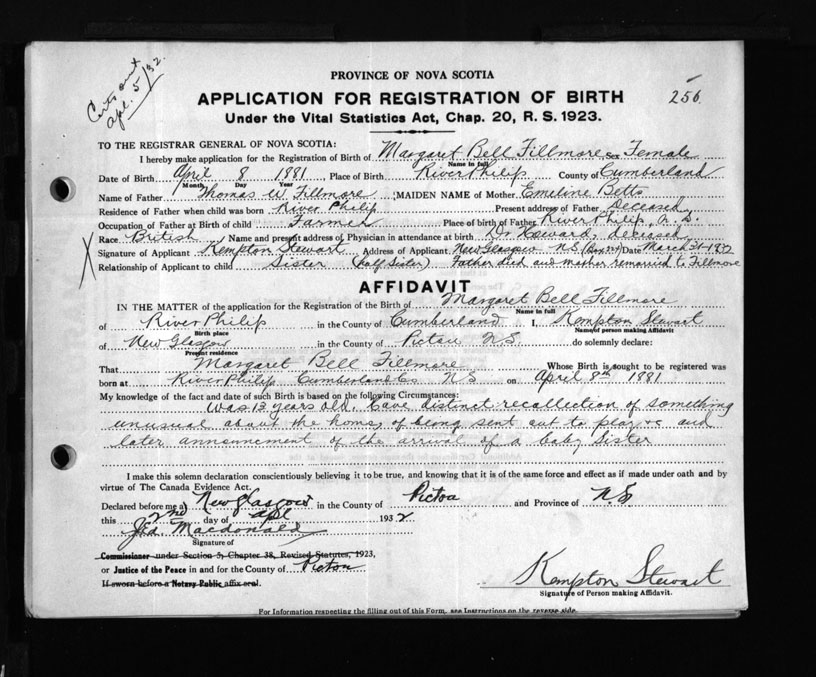 Certs out
Apl. 5/32.
256
PROVINCE OF NOVA SCOTIA
APPLICATION FOR REGISTRATION OF BIRTH
Under the Vital Statistics Act, Chap. 20, R. S. 1923.
TO THE REGISTRAR GENERAL OF NOVA SCOTIA:
I hereby make application for the Registration of Birth of Margaret Bell Fillmore Sex Female
Name in full
Date of Birth April 8 1881 Place of Birth River Philip County of Cumberland
Month Day Year
Name of Father Thomas W. Fillmore MAIDEN NAME of Mother Emeline Betts
Residence of Father when child was born River Philip Present address of Father Deceased
Occupation of Father at Birth of child Farmer Place of birth of Father River Philip, N. S.
Race British Name and present address of Physician in attendance at birth Dr Howard, deceased
X Signature of Applicant Kempton Stewart Address of Applicant New Glasgow N.S. Date March 31-1932
Relationship of Applicant to child Sister (half Sister) Father died and mother remarried to Fillmore
AFFIDAVIT
IN THE MATTER of the application for the Registration of the Birth of Margaret Bell Fillmore
Name in full
of River Philip in the County of Cumberland I, Kempton Stewart
Birth place Name of person making Affidavit
of New Glasgow in the County of Pictou N.S. do solemnly declare:
Present residence
That Margaret Bell Fillmore Whose Birth is sought to be registered was
born at River Philip Cumberland Co N S on April 8th 1881
My knowledge of the fact and date of such Birth is based on the following Circumstances:
Was 13 years old. Have distinct recollection of something
unusual about the home, of being sent out to play &c and
later announcement of the arrival of a baby Sister
I make this solemn declaration conscientiously believing it to be true, and knowing that it is of the same force and effect as if made under oath and by
virtue of The Canada Evidence Act.
Declared before me at New Glasgow in the County of Pictou and Province of N.S
this 2nd day of Apl 1932
Jas. Macdonald
Signature of
Commissioner under Section 5, Chapter 38, Revised Statutes, 1923,
or Justice of the Peace in and for the County of Pictou
If sworn before a Notary Public affix seal.
Kempton Stewart
Signature of Person making Affidavit.
For Information respecting the filling out of this Form, see Instructions on the reverse side.